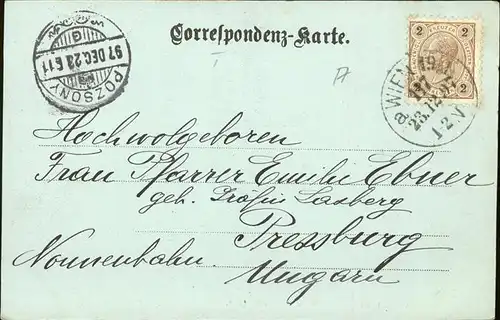 Correspondenz-Karte.
2 2
POZSONY
97 DEC. 23
WIEN
23.12.97
1-2 N
Hochwolgeboren
Frau Pfarrer Emilie Ebner
geb. Gräfin Lasberg
Pressburg
Nonnenbahn.
Ungarn